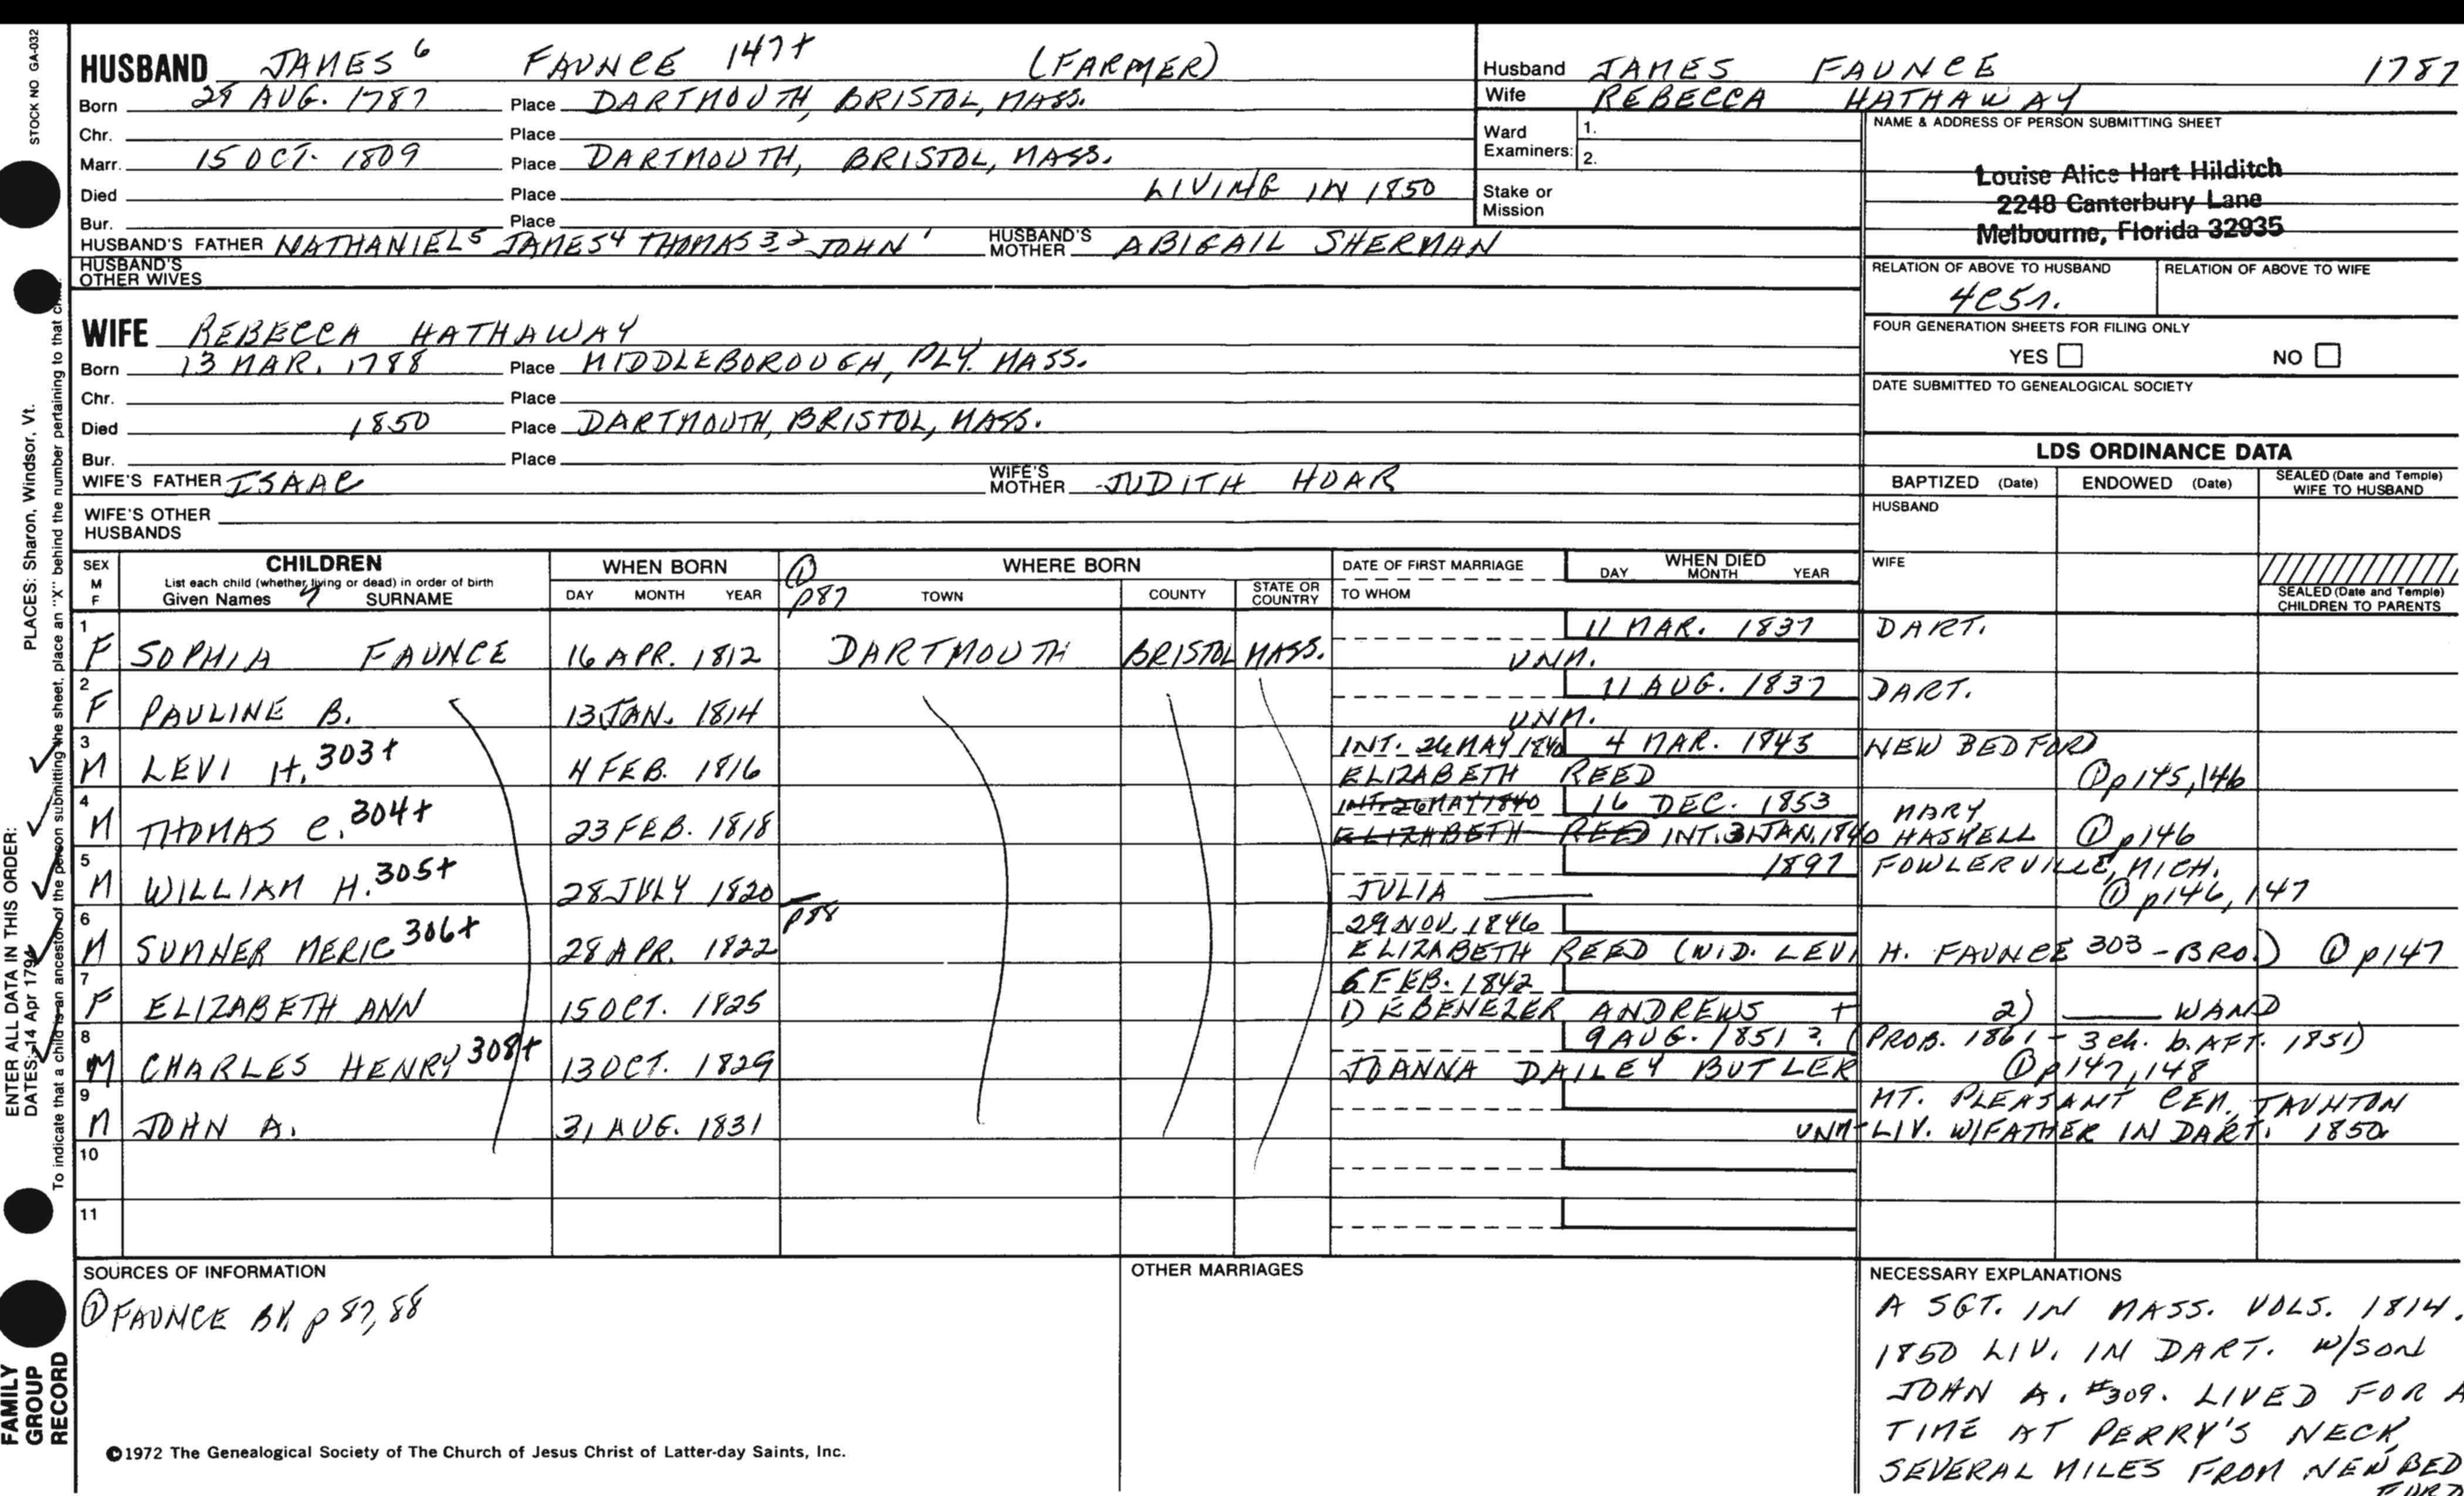 STOCK NO GA-032
HUSBAND JAMES 6 FAUNCE 147+ (FARMER)
Born AUG. 1787 Place DARTMOUTH, BRISTOL, MASS.
Chr. Place
Marr. 15 OCT. 1809 Place DARTMOUTH, BRISTOL, MASS.
Died Place LIVING IN 1850
Bur. Place
HUSBAND'S FATHER NATHANIEL5 JAMES4 THOMAS3,2 JOHN1 HUSBAND'S MOTHER ABIGAIL SHERMAN
HUSBAND'S OTHER WIVES
WIFE REBECCA HATHAWAY
Born 13 MAR. 1788 Place MIDDLEBOROUGH, PLY. MASS.
Chr. Place
Died 1850 Place DARTMOUTH, BRISTOL, MASS.
Bur. Place
WIFE'S FATHER ISAAC WIFE'S MOTHER JUDITH HOAR
WIFE'S OTHER HUSBANDS
Husband JAMES FAUNCE 1787
Wife REBECCA HATHAWAY
Ward Examiners: 1.
2.
Stake or Mission
NAME & ADDRESS OF PERSON SUBMITTING SHEET
Louise Alice Hart Hilditch
2248 Canterbury Lane
Melbourne, Florida 32935
RELATION OF ABOVE TO HUSBAND RELATION OF ABOVE TO WIFE
4C5r.
FOUR GENERATION SHEETS FOR FILING ONLY
YES NO
DATE SUBMITTED TO GENEALOGICAL SOCIETY
LDS ORDINANCE DATA
BAPTIZED (Date) ENDOWED (Date) SEALED (Date and Temple) WIFE TO HUSBAND
HUSBAND
WIFE
SEALED (Date and Temple) CHILDREN TO PARENTS
SEX M F
CHILDREN
List each child (whether living or dead) in order of birth
Given Names SURNAME
WHEN BORN
DAY MONTH YEAR
① p87
WHERE BORN
TOWN COUNTY STATE OR COUNTRY
DATE OF FIRST MARRIAGE
TO WHOM
WHEN DIED
DAY MONTH YEAR
1 F SOPHIA FAUNCE 16 APR. 1812 DARTMOUTH BRISTOL MASS. 11 MAR. 1837 DART.
UNM.
2 F PAULINE B. 13 JAN. 1814 11 AUG. 1837 DART.
UNM.
3 M LEVI H. 303+ 4 FEB. 1816 INT. 26 MAY 1840 4 MAR. 1843 NEW BEDFORD
ELIZABETH REED ① p145,146
4 M THOMAS C. 304+ 23 FEB. 1818 INT. 26 MAY 1840 16 DEC. 1853 MARY
ELIZABETH REED INT. 31 JAN. 1840 HASKELL ① p146
5 M WILLIAM H. 305+ 28 JULY 1820 1897 FOWLERVILLE, MICH.
JULIA ① p146, 147
p88
6 M SUMNER MERIC 306+ 28 APR. 1822 29 NOV. 1846
ELIZABETH REED (WID. LEVI H. FAUNCE 303 - BRO.) ① p147
7 F ELIZABETH ANN 15 OCT. 1825 6 FEB. 1842
1) EBENEZER ANDREWS + 2) WAND
8 M CHARLES HENRY 308+ 13 OCT. 1829 9 AUG. 1851 ? (PROB. 1861 - 3 ch. b. AFT. 1851)
JOANNA DAILEY BUTLER ① p147,148
9 M JOHN A. 31 AUG. 1831 MT. PLEASANT CEM, TAUNTON
UNM-LIV. W/FATHER IN DART. 1850
10
11
SOURCES OF INFORMATION
① FAUNCE BK p 87, 88
OTHER MARRIAGES
NECESSARY EXPLANATIONS
A SGT. IN MASS. VOLS. 1814.
1850 LIV. IN DART. W/SON
JOHN A. #309. LIVED FOR A
TIME AT PERRY'S NECK,
SEVERAL MILES FROM NEW BED
FORD
©1972 The Genealogical Society of The Church of Jesus Christ of Latter-day Saints, Inc.
FAMILY GROUP RECORD
ENTER ALL DATA IN THIS ORDER:
DATES: 14 Apr 1794
PLACES: Sharon, Windsor, Vt.
To indicate that a child is an ancestor of the person submitting the sheet, place an "X" behind the number pertaining to that child.